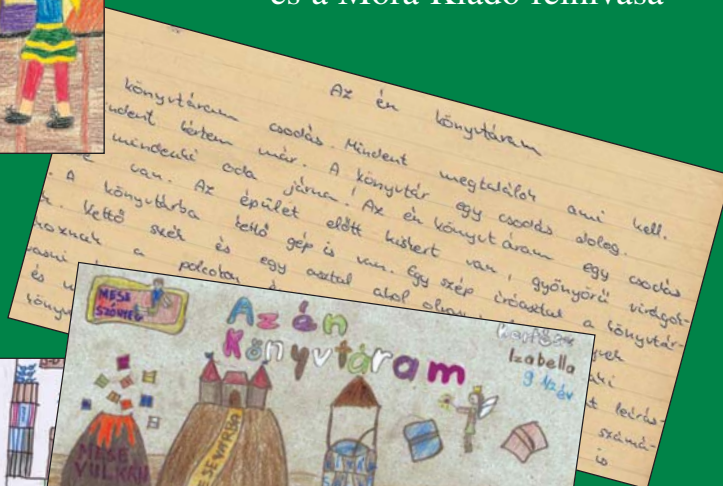 és a Móra Kiadó felhívása
Az én könyvtáram
könyvtáram csodás. Mindent megtalálok ami kell.
indent kértem már. A könyvtár egy csodás dolog.
mindenki oda járna! Az én könyvtáram egy csodás
van. Az épület előtt kiskert van, gyönyörű virágok-
A könyvtárba kettő gép is van. Egy szép íróasztal a könyvtár-
k. Kettő szék és egy asztal ahol
koznak a polcokon
vasni
és
könyv
leírás-
számá-
is
MESE
SZŐNYEG
Az én
Könyvtáram
Izabella
9 1/2 év
MESE
VULKÁN
MESEVÁRBA